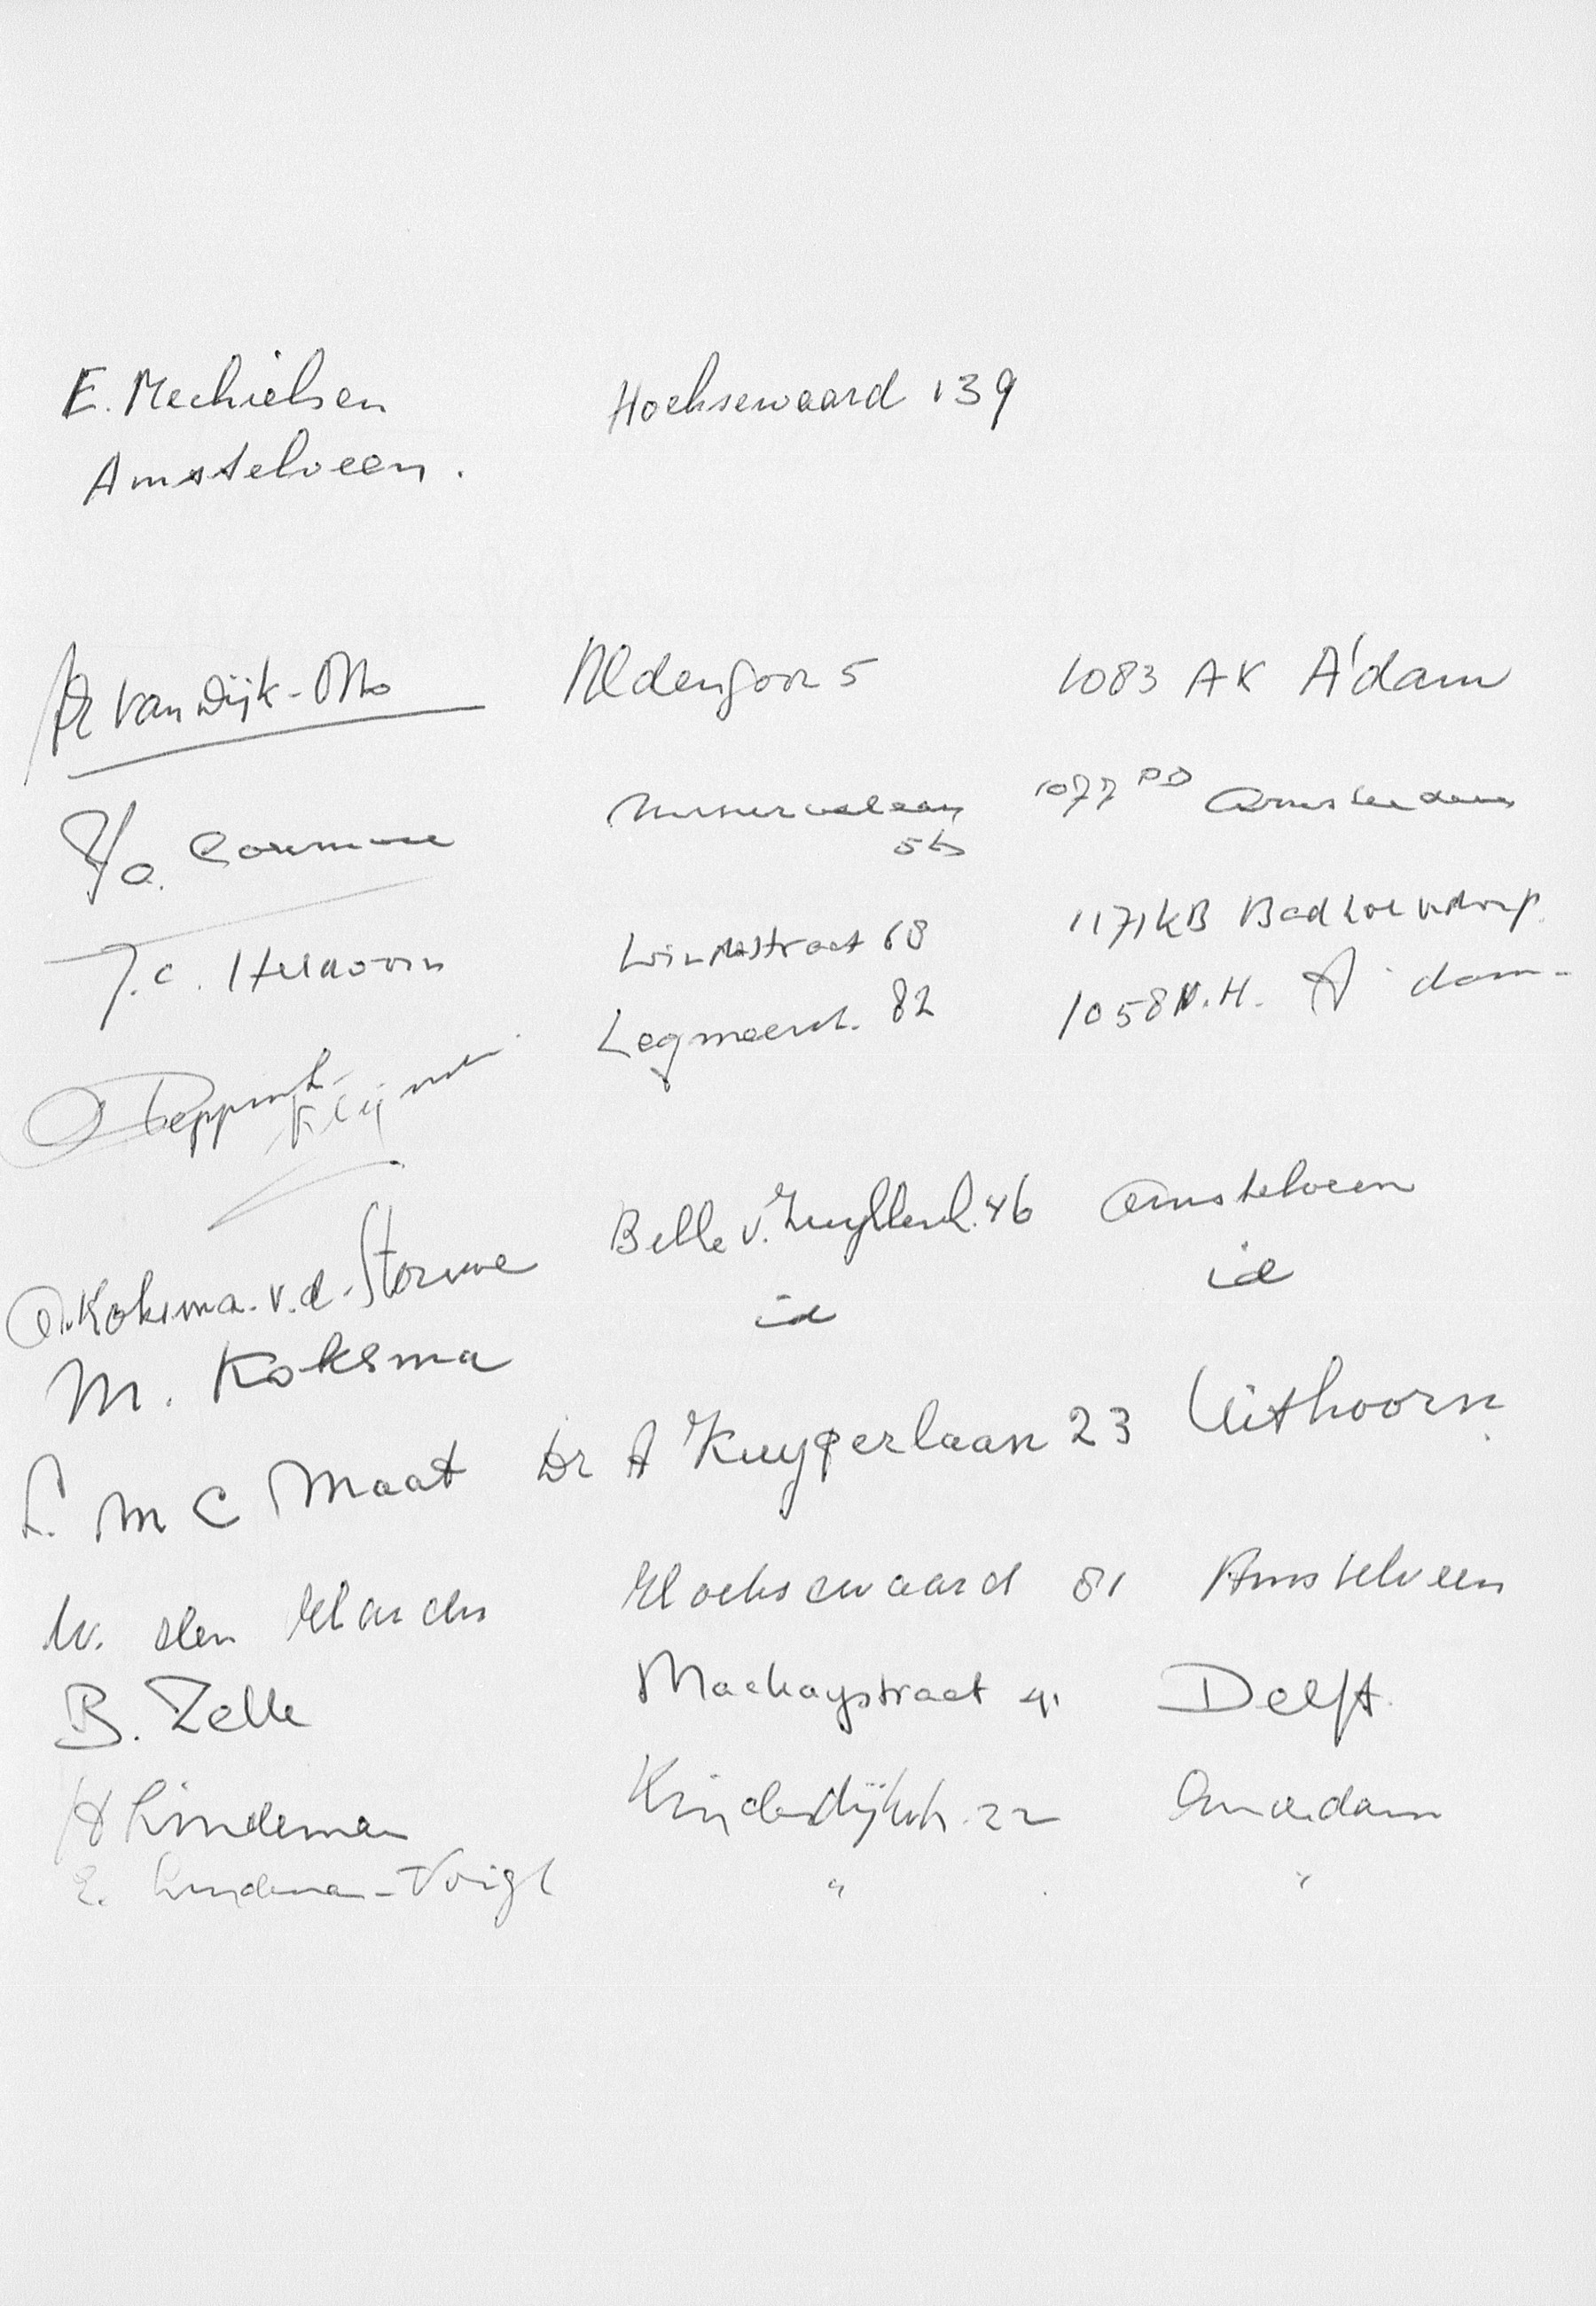 E. Mechielsen Hoeksewaard 139
Amstelveen.
van Dijk-Otto 5 1083 AK A'dam
Minervalaan 1077 PD Amsterdam
56
J.C. 68 1171KB Badhoevedorp
Legmeerst. 82 1058 N.H. A'dam-
Koksma-v.d. Belle v. Zuylenl. 46 Amstelveen
M. Koksma id id
L. M C Maat Dr A Kuyperlaan 23 Uithoorn
W. den Hoeksewaard 81 Amstelveen
B. Zelle Mackaystraat 41 Delft.
H Lindeman Kinderdijkstr. 22 Amsterdam
E. Lindeman-Voigt " "